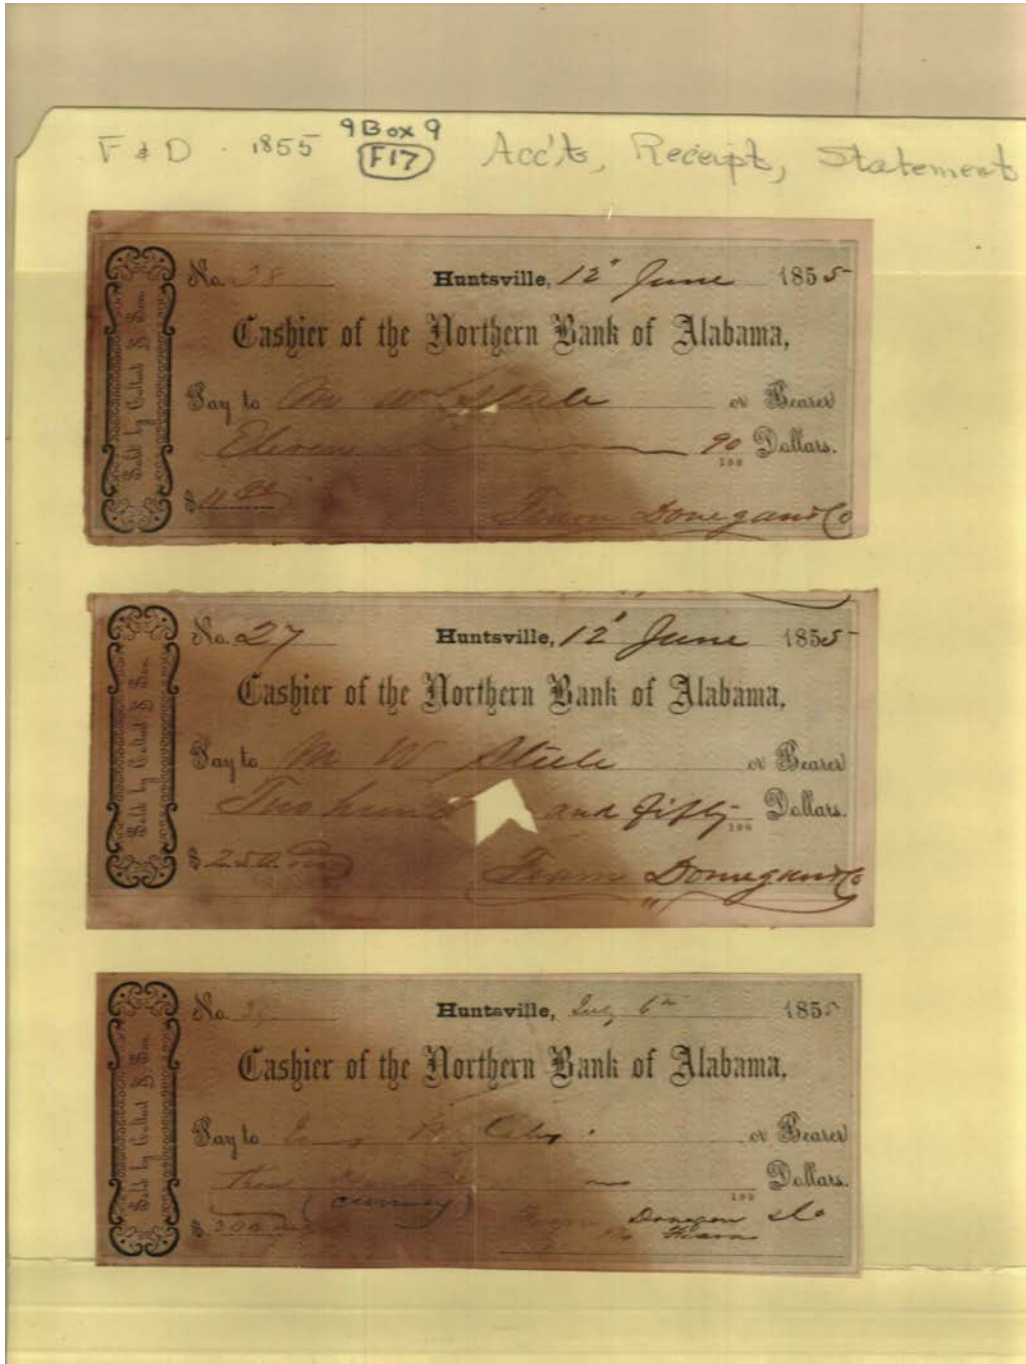 F & D . 1855 9Box 9 Acc'ts, Receipt, Statement
F17
No. 28 Huntsville, 12" June 1855
Cashier of the Northern Bank of Alabama,
Pay to M W Steele or Bearer
Eleven 90/100 Dollars.
$ 11.90
Fearn Donegan & Co
Sold by Coltart & Son.
No. 27 Huntsville, 12" June 1855
Cashier of the Northern Bank of Alabama,
Pay to M W Steele or Bearer
Two hund and fifty 100 Dollars.
$ 250.
Fearn Donegan & Co
Sold by Coltart & Son.
No. Huntsville, July 6th 1855
Cashier of the Northern Bank of Alabama,
Pay to or Bearer
100 Dollars.
(currency)
$ 300 Fearn Donegan & Co
Fearn
Sold by Coltart & Son.